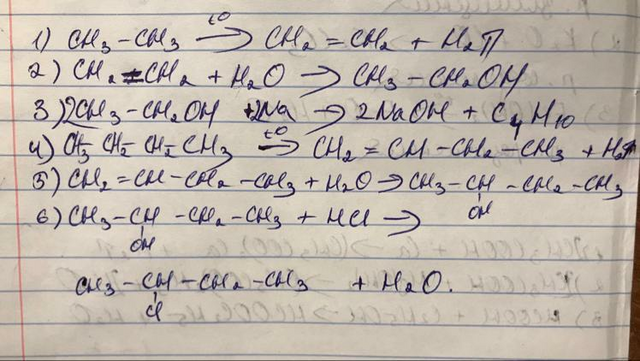 1) CH3 – CH3 t° → CH2 = CH2 + H2↑
2) CH2 = CH2 + H2O → CH3 – CH2OH
3) 2CH3 – CH2OH + 2Na → 2NaOH + C4H10
4) CH3 CH2 – CH2 – CH3 t° → CH2 = CH – CH2 – CH3 + H2↑
5) CH2 = CH – CH2 – CH3 + H2O → CH3 – CH – CH2 – CH3
OH
6) CH3 – CH – CH2 – CH3 + HCl →
OH
CH3 – CH – CH2 – CH3 + H2O.
Cl